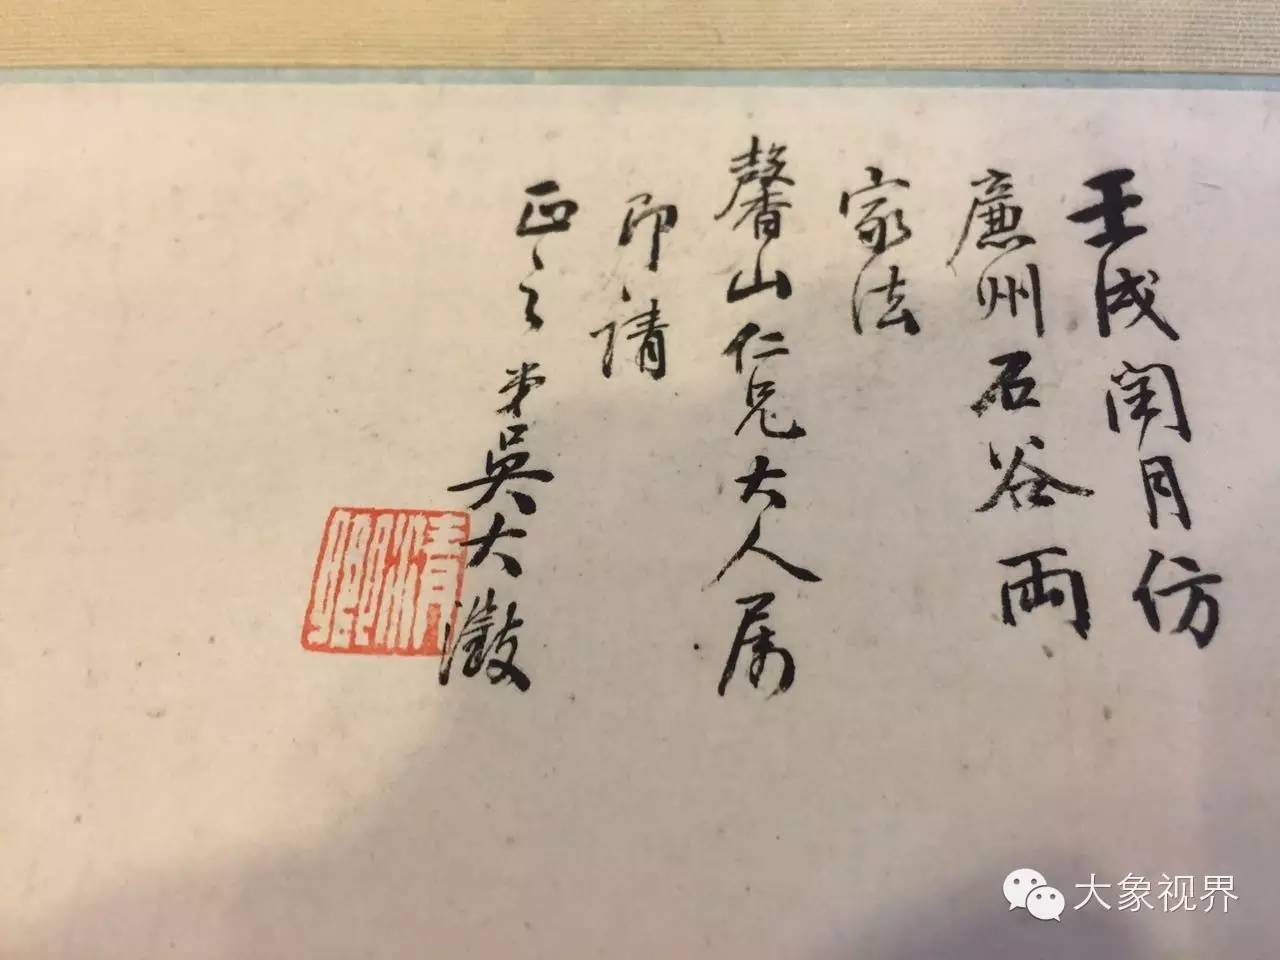 壬戌閏月仿
廉州石谷兩
家法
馨山仁兄大人属
即請
正之 弟吳大澂
清卿
大象视界